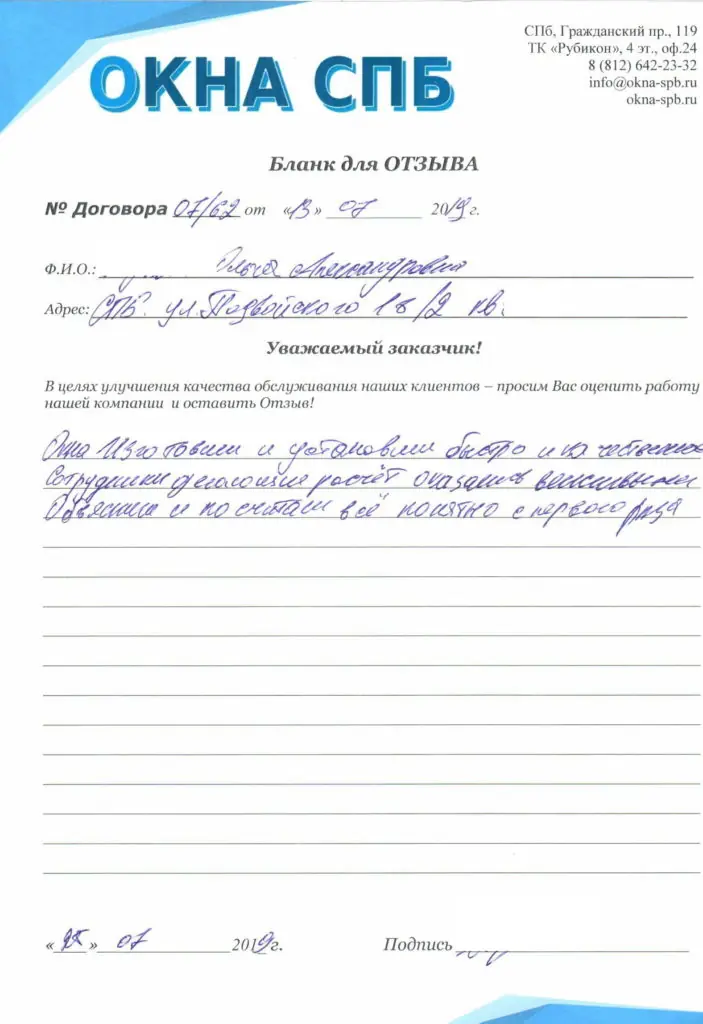 СПб, Гражданский пр., 119
ТК «Рубикон», 4 эт., оф.24
8 (812) 642-23-32
info@okna-spb.ru
okna-spb.ru
ОКНА СПБ
Бланк для ОТЗЫВА
№ Договора 07/62 от «13» 07 2019г.
Ф.И.О.: Ольга Александровна
Адрес: СПБ. ул. Подвойского 18/2 кв.
Уважаемый заказчик!
В целях улучшения качества обслуживания наших клиентов – просим Вас оценить работу
нашей компании и оставить Отзыв!
Окна изготовили и установили быстро и качественно
Сотрудники делающие расчёт оказались вежливыми
Объяснили и посчитали всё понятно с первого раза
« » 07 2019г. Подпись